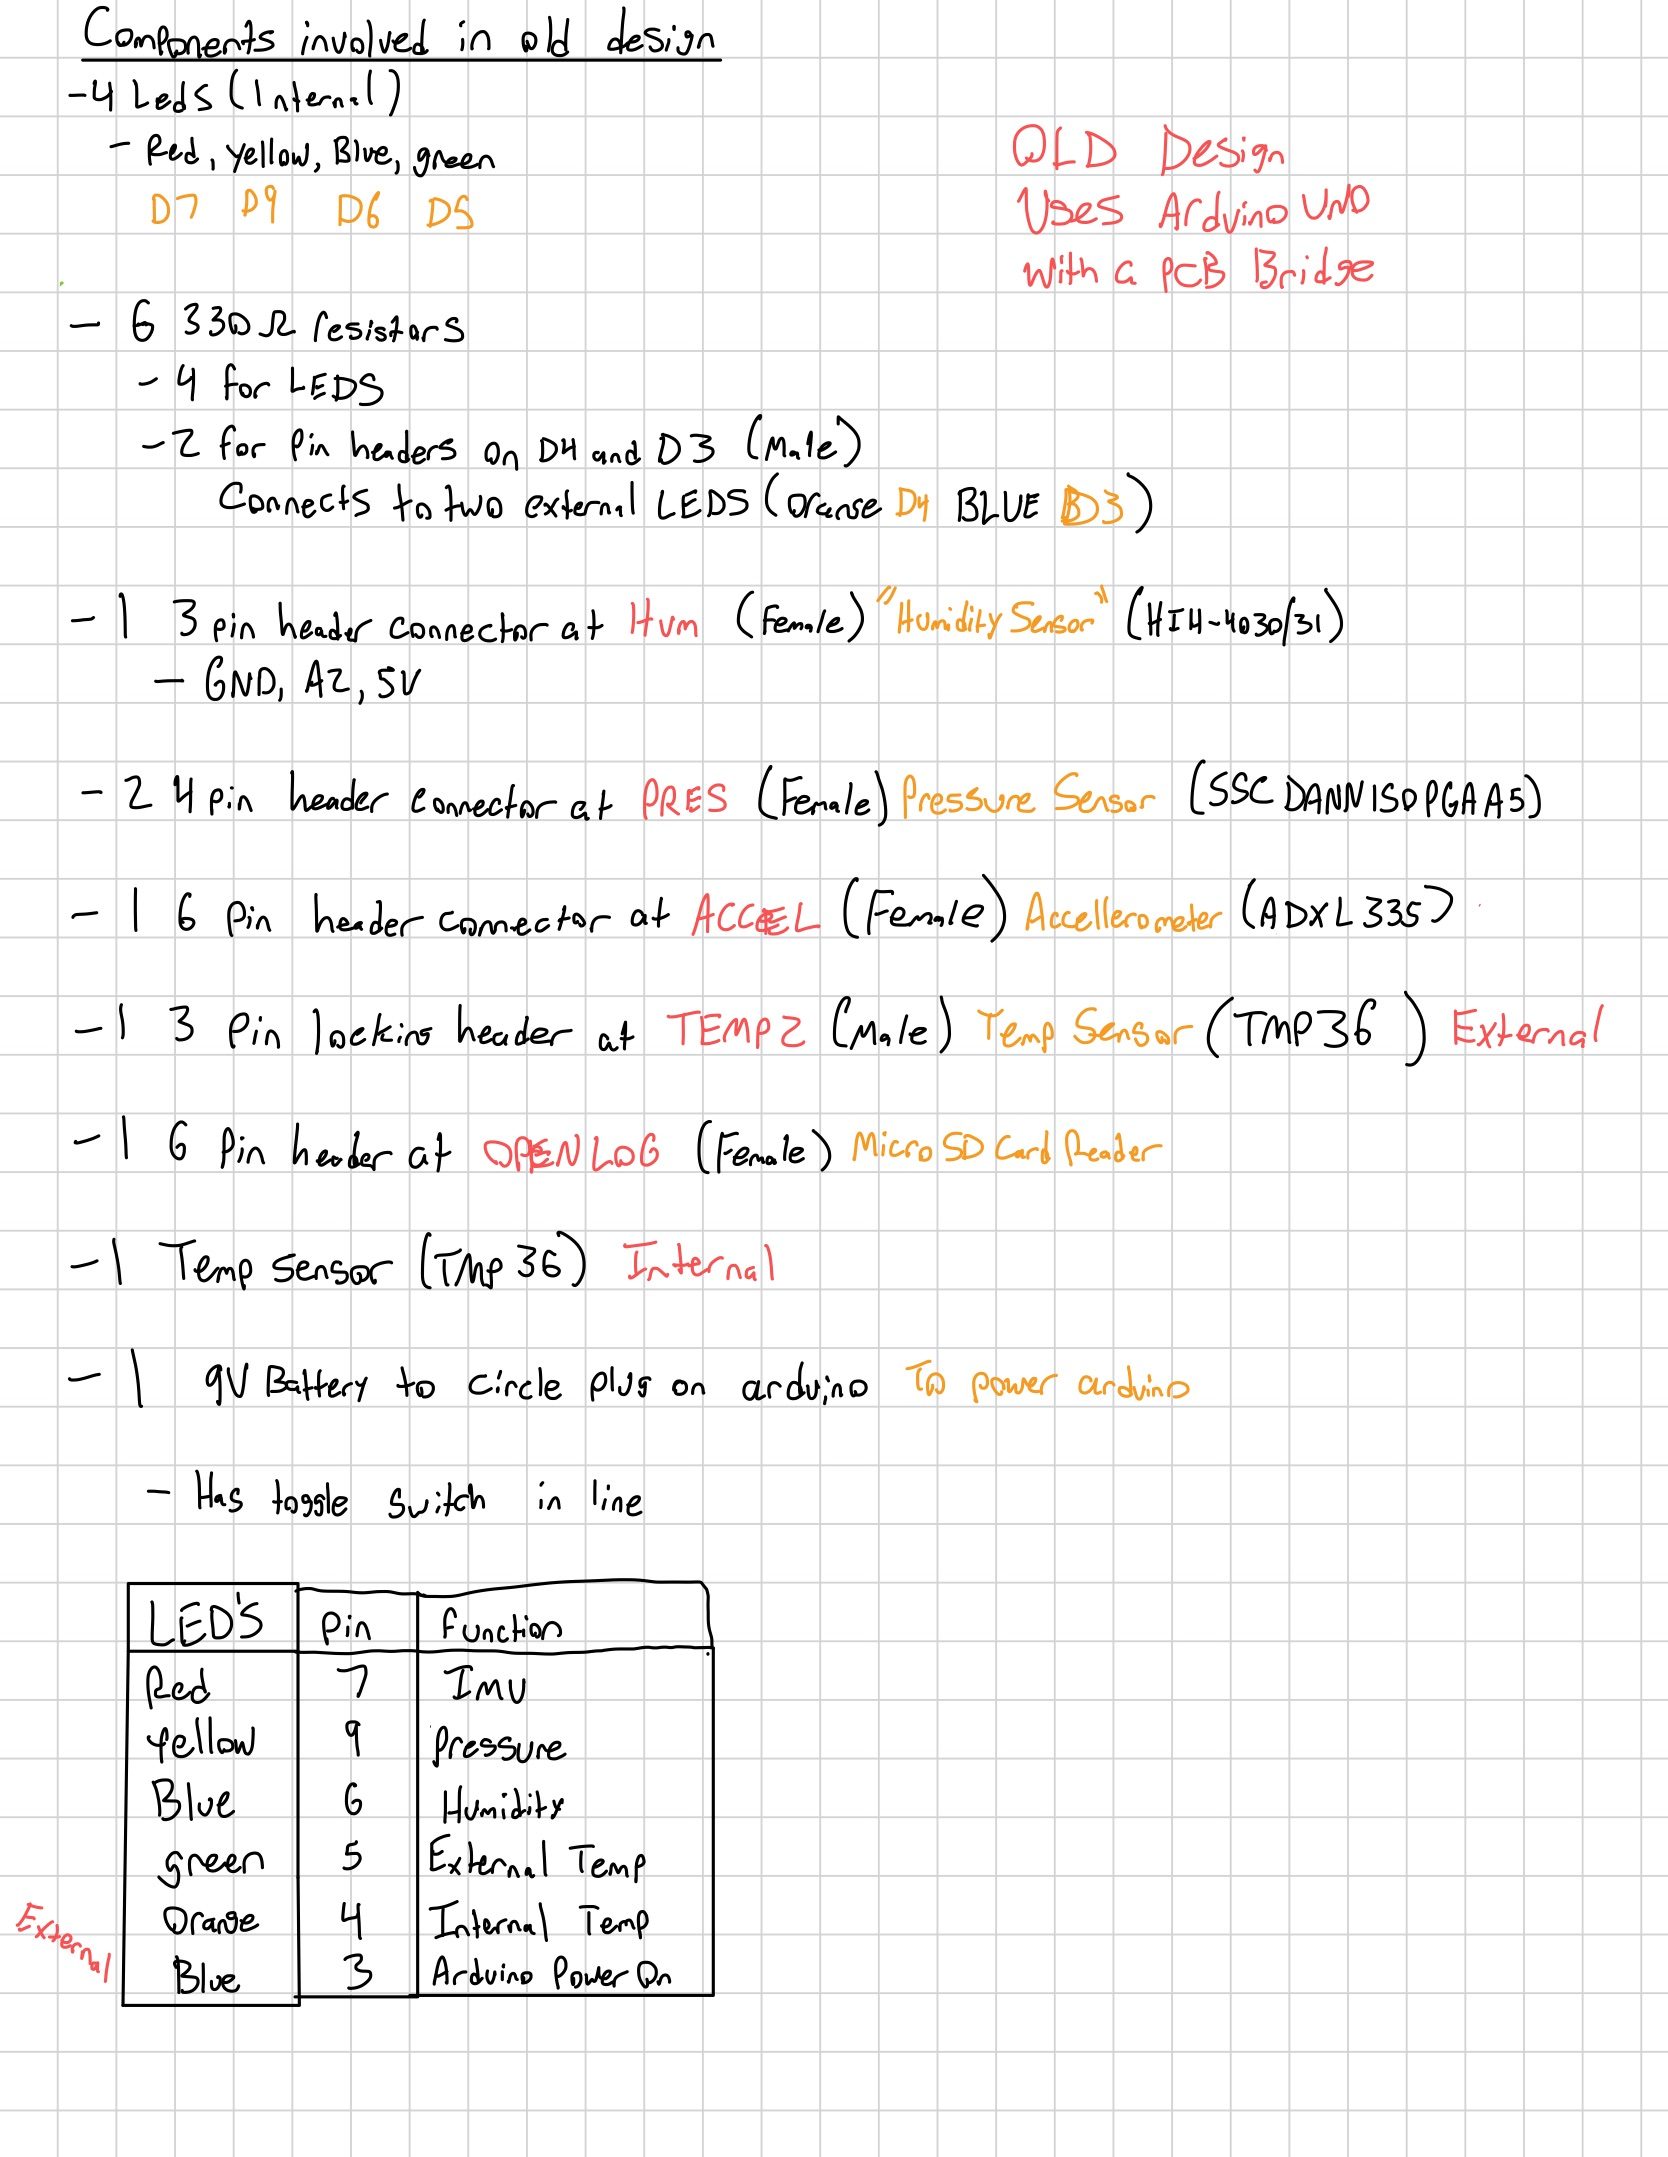 Components involved in old design
-4 Leds (Internal)
- Red, yellow, Blue, green
D7 D9 D6 D5
OLD Design
Uses Arduino UNO
with a PCB Bridge
- 6 330Ω resistors
- 4 for LEDS
-2 for Pin headers on D4 and D3 (Male)
Connects to two external LEDS (Orange D4 BLUE D3)
-1 3 pin header connector at Hum (Female) "Humidity Sensor" (HIH-4030/31)
- GND, A2, 5V
-2 4 pin header connector at PRES (Female) Pressure Sensor (SSCDANN150PGAA5)
-1 6 Pin header connector at ACCEL (Female) Accellerometer (ADXL335)
-1 3 Pin locking header at TEMP2 (Male) Temp Sensor (TMP36) External
-1 6 Pin header at OPENLOG (Female) Micro SD Card Reader
-1 Temp sensor (TMP36) Internal
-1 9V Battery to circle plug on arduino To power arduino
- Has toggle switch in line
LED'S Pin function
Red 7 IMU
yellow 9 Pressure
Blue 6 Humidity
green 5 External Temp
Orange 4 Internal Temp
External
Blue 3 Arduino Power On